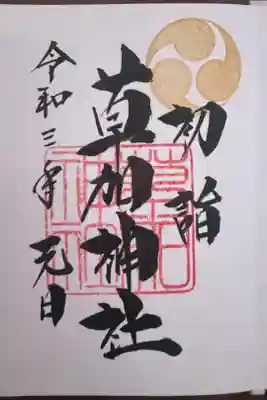 初詣
草加神社
令和三年 元日